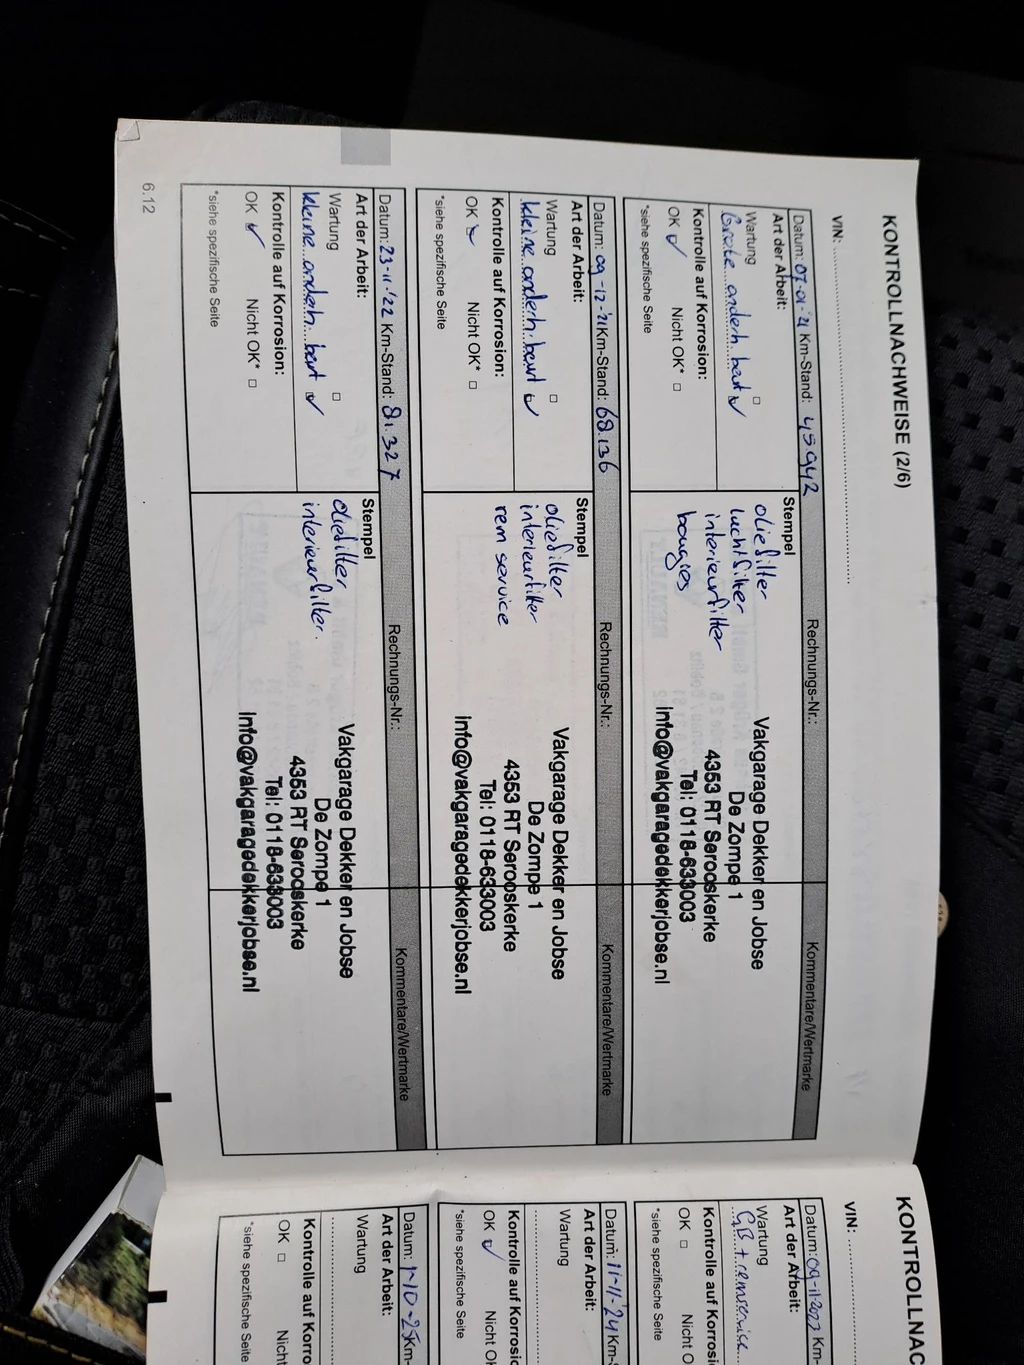 KONTROLLNACHWEISE (2/6)
VIN:
Datum: 07-01-'21 Km-Stand: 45942
Rechnungs-Nr.:
Kommentare/Wertmarke
Art der Arbeit:
Wartung
Grote onderh. beurt
Kontrolle auf Korrosion:
OK Nicht OK*
*siehe spezifische Seite
Stempel
oliefilter
luchtfilter
interieurfilter
bougies
Vakgarage Dekker en Jobse
De Zompe 1
4353 RT Serooskerke
Tel: 0118-633003
info@vakgaragedekkerjobse.nl
Datum: 09-12-'21 Km-Stand: 68.136
Rechnungs-Nr.:
Kommentare/Wertmarke
Art der Arbeit:
Wartung
kleine onderh. beurt
Kontrolle auf Korrosion:
OK Nicht OK*
*siehe spezifische Seite
Stempel
oliefilter
interieurfilter
rem service
Vakgarage Dekker en Jobse
De Zompe 1
4353 RT Serooskerke
Tel: 0118-633003
info@vakgaragedekkerjobse.nl
Datum: 23-11-'22 Km-Stand: 81.327
Rechnungs-Nr.:
Kommentare/Wertmarke
Art der Arbeit:
Wartung
kleine onderh. beurt
Kontrolle auf Korrosion:
OK Nicht OK*
*siehe spezifische Seite
Stempel
oliefilter
interieurfilter.
Vakgarage Dekker en Jobse
De Zompe 1
4353 RT Serooskerke
Tel: 0118-633003
info@vakgaragedekkerjobse.nl
6.12
KONTROLLNAC
VIN:
Datum: 09-11-2023 Km-
Art der Arbeit:
Wartung
GB + remservice
Kontrolle auf Korros
OK Nicht O
*siehe spezifische Seite
Datum: 11-11-'24 Km-S
Art der Arbeit:
Wartung
Kontrolle auf Korrosio
OK Nicht OK
*siehe spezifische Seite
Datum: Km-
Art der Arbeit:
Wartung
Kontrolle auf Korro
OK Nicht
*siehe spezifische Seite